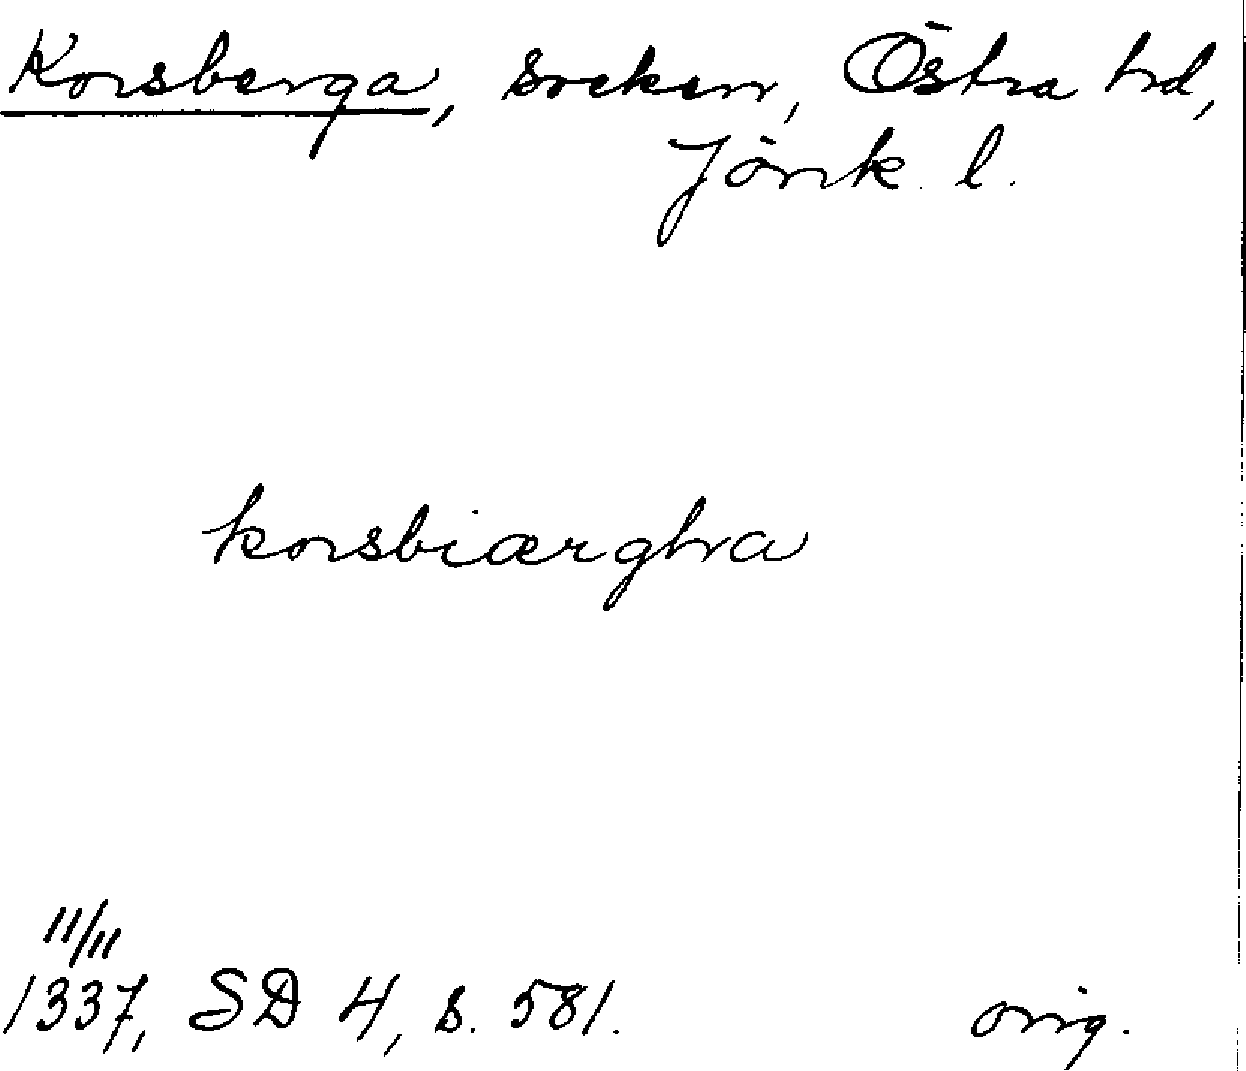 Korsberga, socken, Östra hd,
Jönk. l.
korsbiærgha
11/11
1337, SD 4, s. 581. orig.